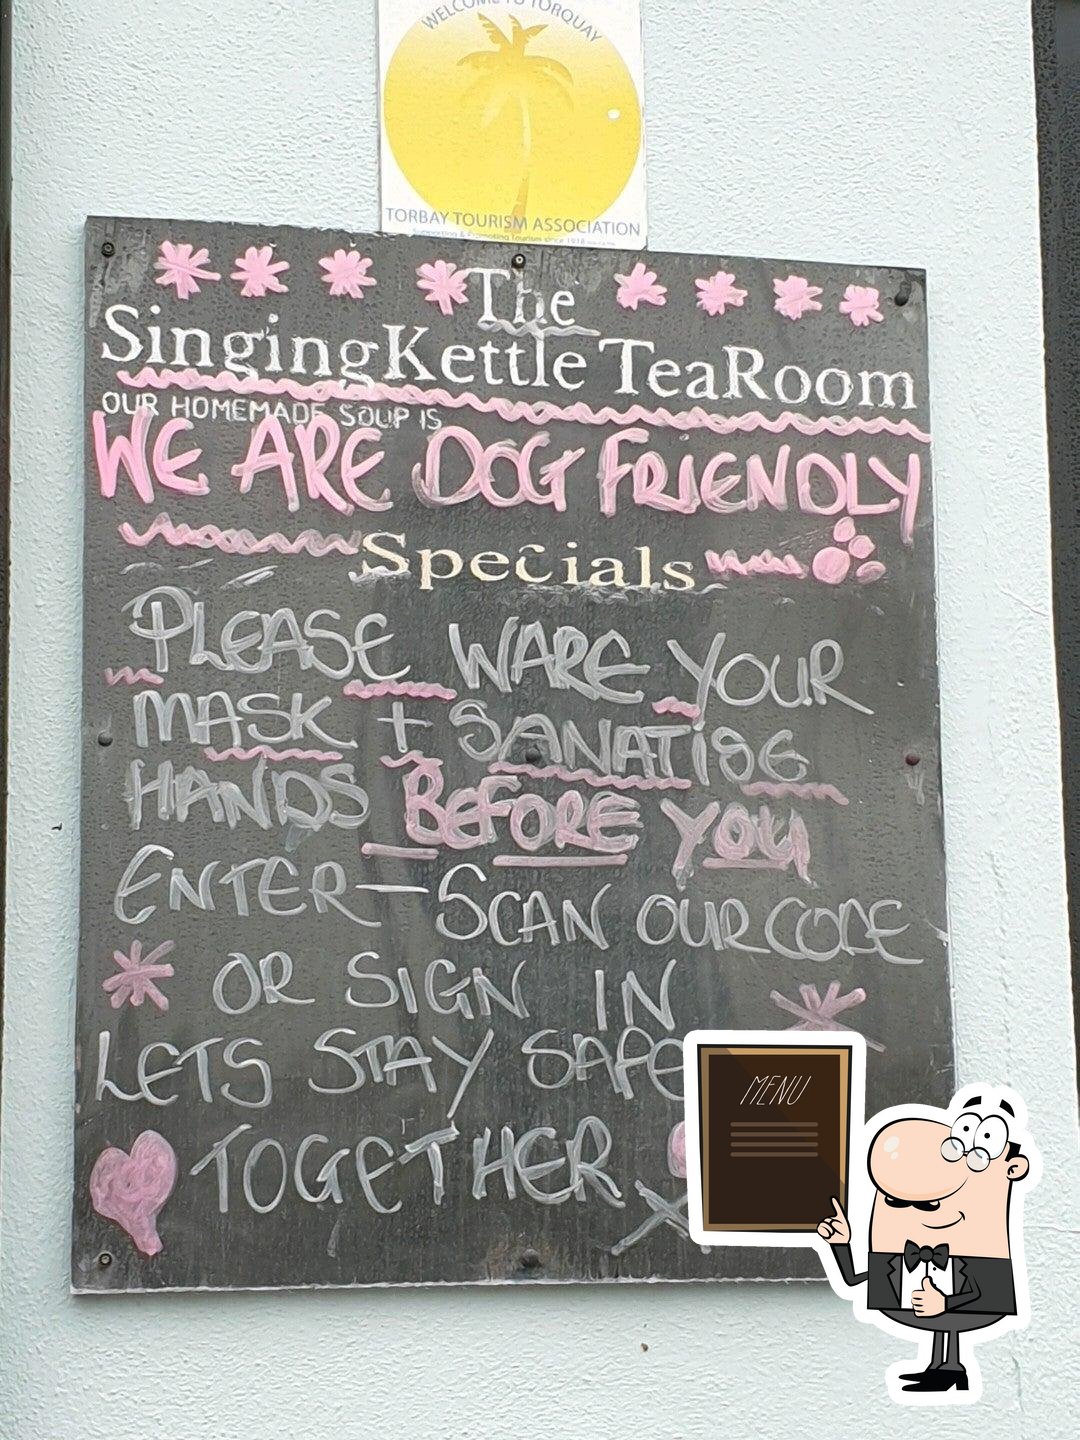 WELCOME TO TORQUAY
TORBAY TOURISM ASSOCIATION
Supporting & Promoting Tourism since 1918
The
Singing Kettle Tea Room
OUR HOMEMADE SOUP IS
WE ARE DOG FRIENDLY
Specials
PLEASE WARE YOUR
MASK + SANATISE
HANDS BEFORE YOU
ENTER — SCAN OUR CODE
* OR SIGN IN *
LETS STAY SAFE
TOGETHER
X
MENU